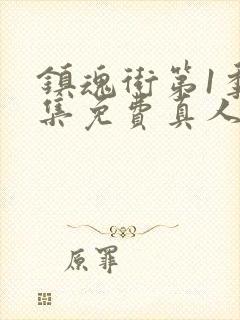 鎮魂街第1季
集免費真人
原罪